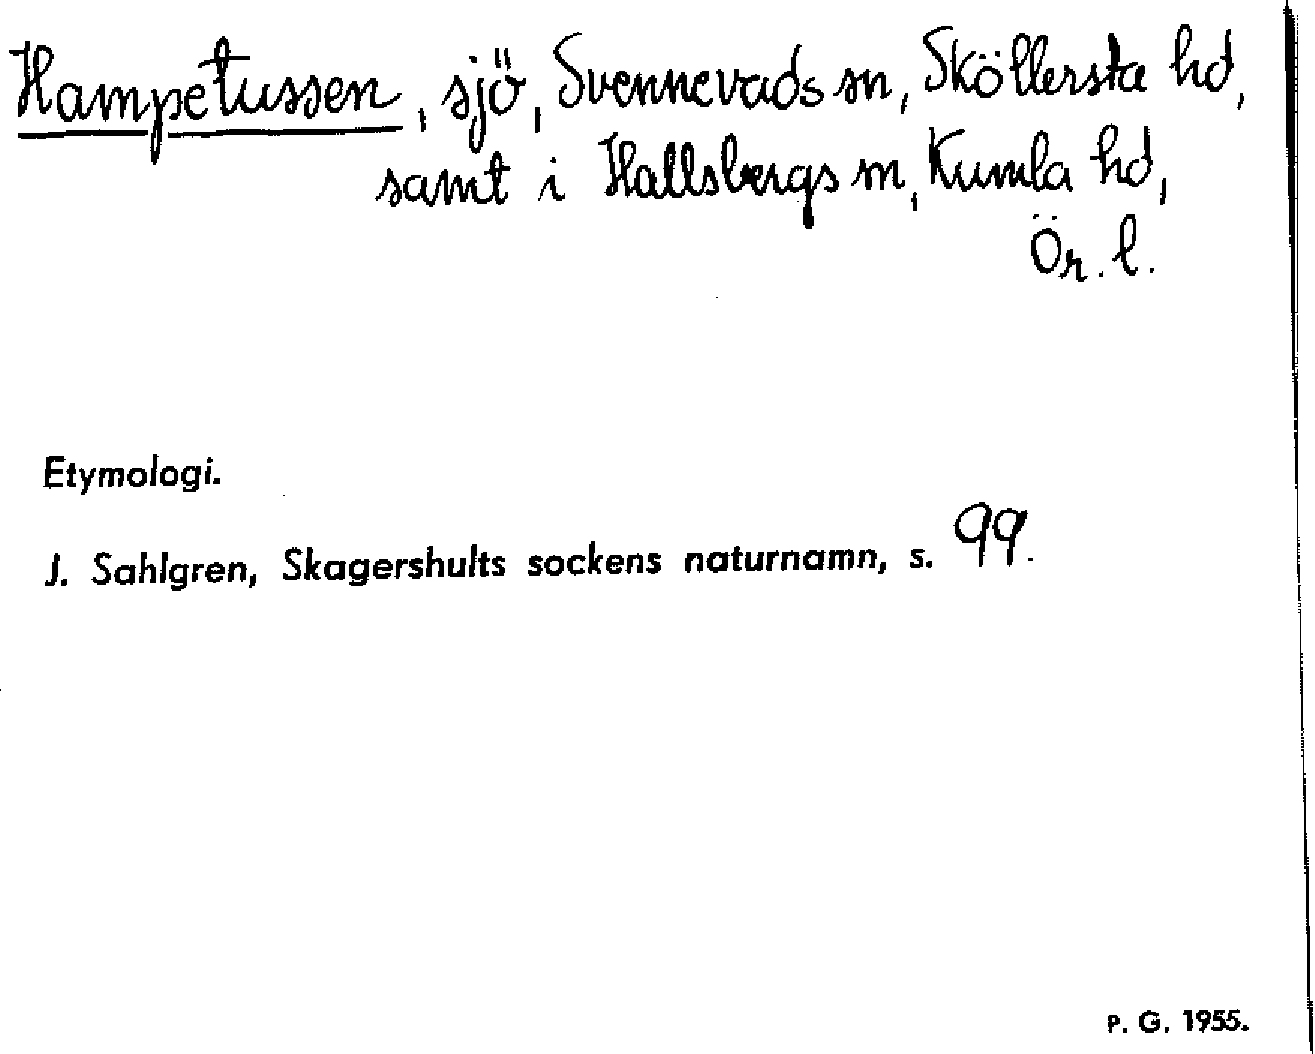 Hampetussen, sjö, Svennevads sn, Sköllersta hd,
samt i Hallsbergs sn, Kumla hd,
Ör. l.
Etymologi.
J. Sahlgren, Skagershults sockens naturnamn, s. 99.
P. G. 1955.